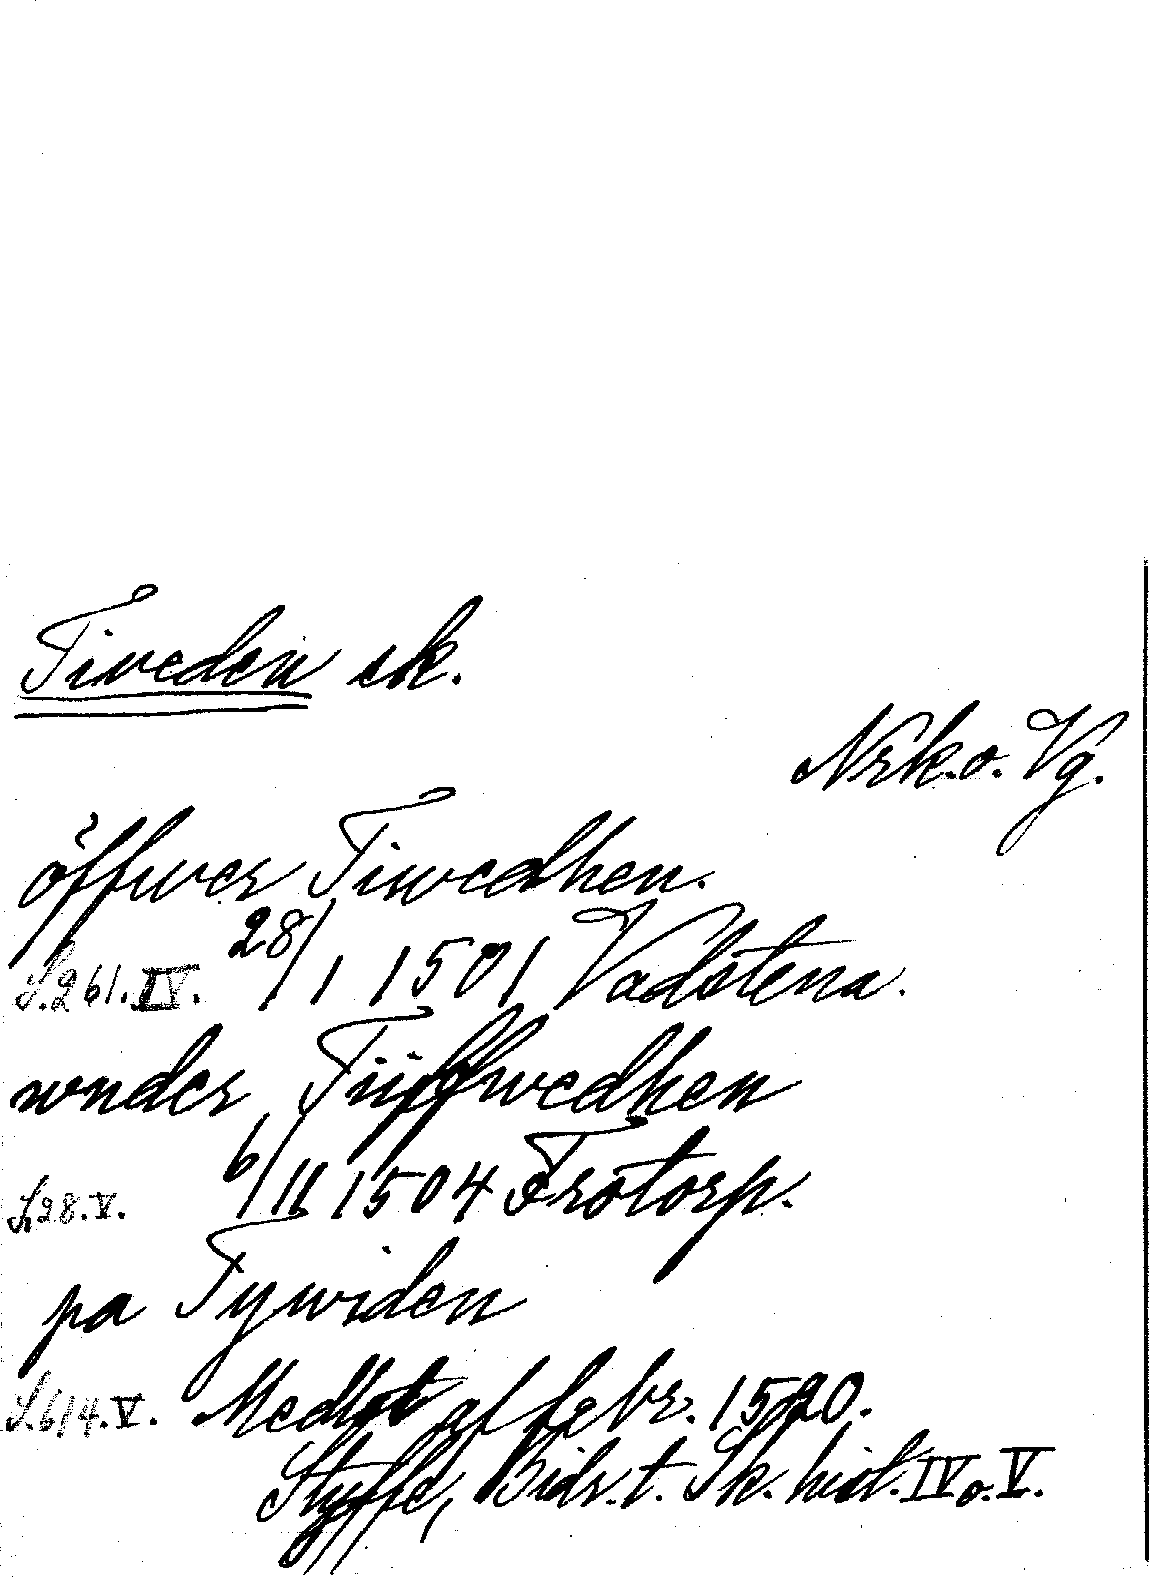 Tiveden sk.
Nrk. o. Vg.
öffwer Tiwedhen.
S. 261. IV. 28/1 1501 Vadstena.
wnder Tiiffwedhen
S. 28. V. 6/11 1504 Frötorp.
pa Tywiden
S. 614. V. Medlet af febr. 1520.
Styffe, Bidr. t. Sk. hist. IV o. V.